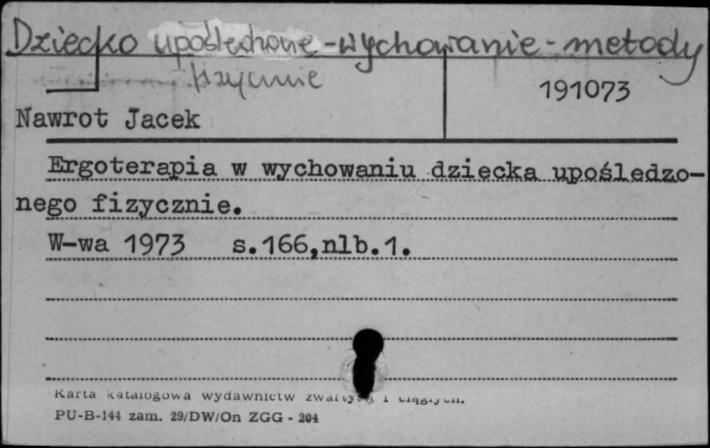 Dziecko upośledzone - wychowanie - metody
fizycznie
191073
Nawrot Jacek
Ergoterapia w wychowaniu dziecka upośledzo-
nego fizycznie.
W-wa 1973 s.166,nlb.1.
Karta katalogowa wydawnictw zwartych i ciągłych.
PU-B-144 zam. 29/DW/On ZGG - 204